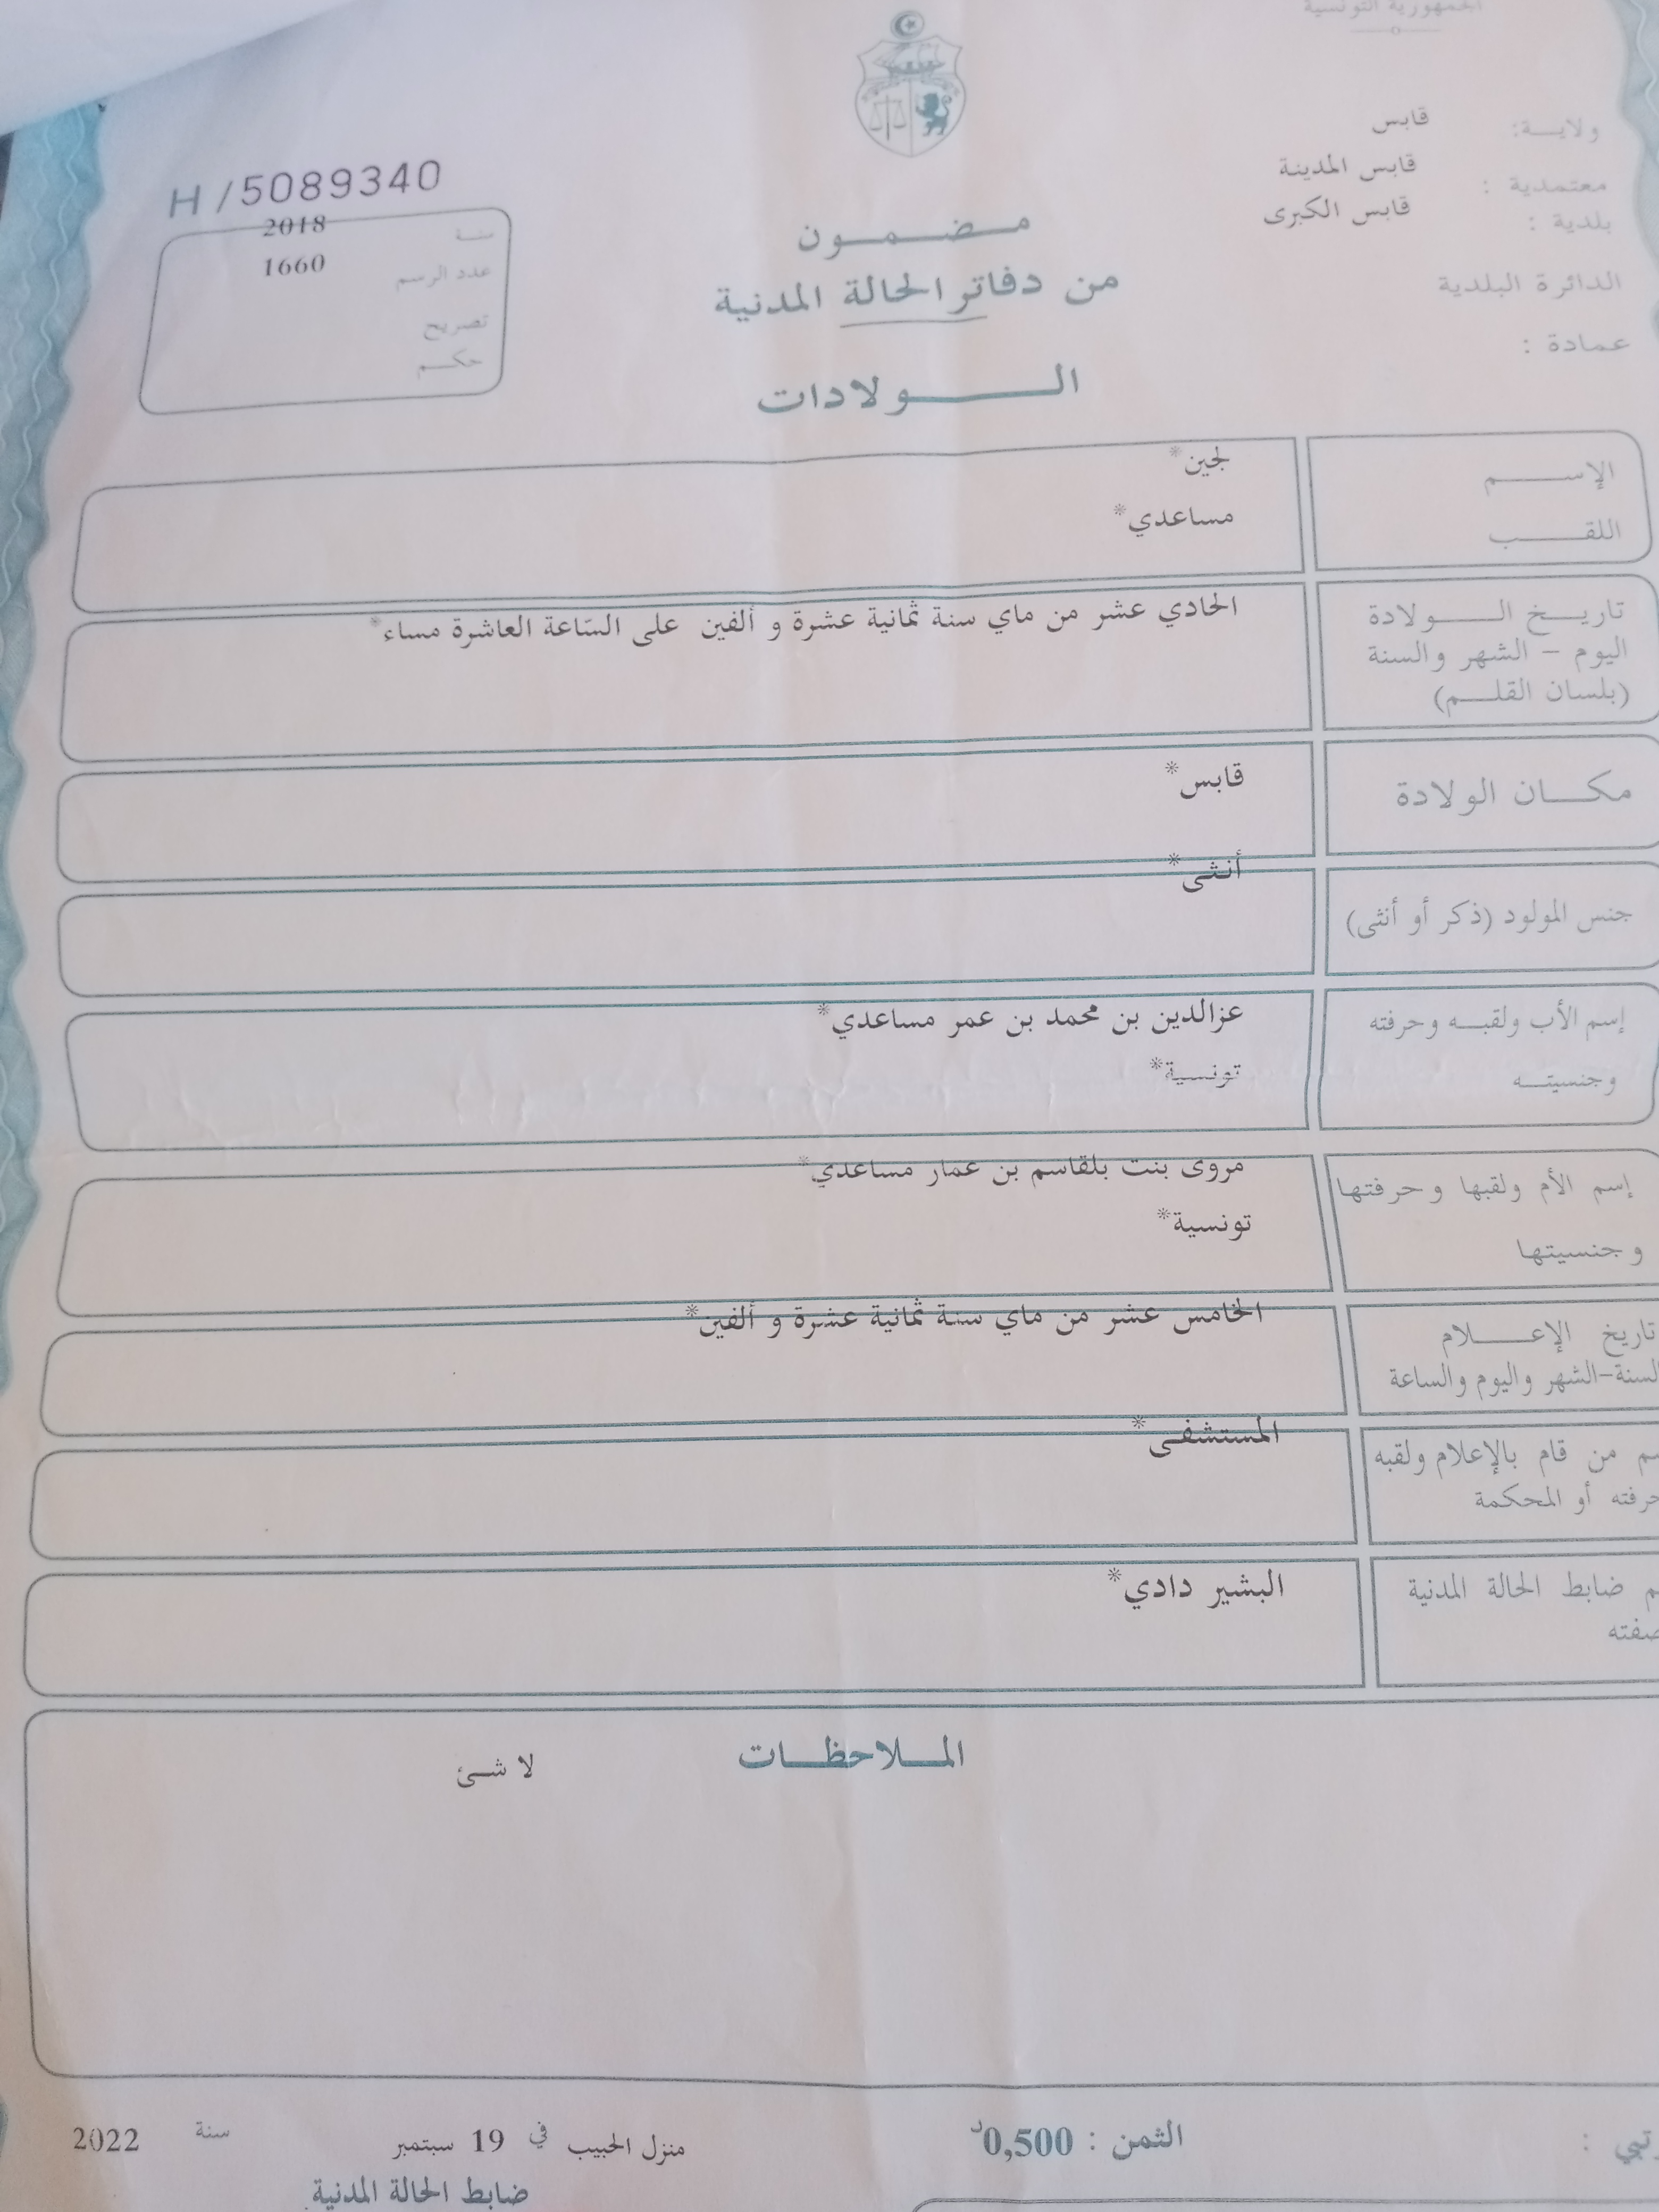 الجمهورية التونسية
ولاية: قابس
معتمدية : قابس المدينة
بلدية : قابس الكبرى
الدائرة البلدية
عمادة :
مضمون
من دفاتر الحالة المدنية
الولادات
H/5089340
سنة 2018
عدد الرسم 1660
تصريح
حكم
الإسم لجين*
اللقب مساعدي*
تاريخ الولادة الحادي عشر من ماي سنة ثمانية عشرة و ألفين على السّاعة العاشرة مساء*
اليوم – الشهر والسنة
(بلسان القلم)
مكان الولادة قابس*
جنس المولود (ذكر أو أنثى) أنثى*
إسم الأب ولقبه وحرفته عزالدين بن محمد بن عمر مساعدي*
وجنسيته تونسية*
إسم الأم ولقبها وحرفتها مروى بنت بلقاسم بن عمار مساعدي*
وجنسيتها تونسية*
تاريخ الإعلام الخامس عشر من ماي سنة ثمانية عشرة و ألفين*
السنة-الشهر واليوم والساعة
من قام بالإعلام ولقبه المستشفى*
أو المحكمة
ضابط الحالة المدنية البشير دادي*
الملاحظات
لا شئ
الثمن : 0,500د
منزل الحبيب في 19 سبتمبر سنة 2022
ضابط الحالة المدنية